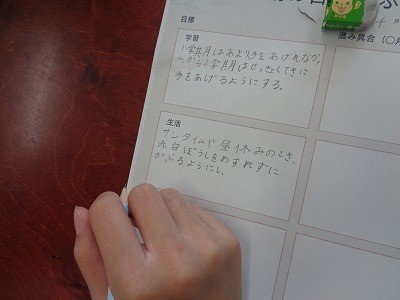 目標
進み具合(○
学習
1学期はあまり手をあげれなか
たから2学其月はせっきょくてきに
手をあげるようにする。
生活
サンタイムや昼休みのとき、
赤白ぼうしをわすれずに
かぶるように